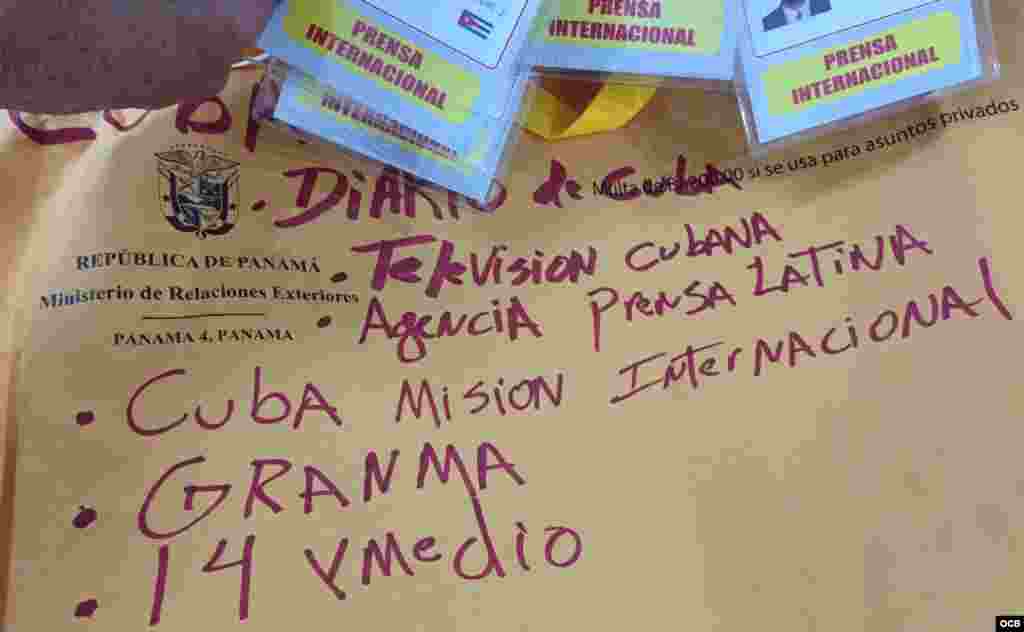 PRENSA
INTERNACIONAL
PRENSA
INTERNACIONAL
PRENSA
INTERNACIONAL
INTERNACIONAL
Multa de si se usa para asuntos privados
• DIARIO de CubA
REPÚBLICA DE PANAMÁ
Ministerio de Relaciones Exteriores
PANAMA 4, PANAMA
• TeleVISION CUBANA
• AgenciA PrensA LATINA
• CubA MISION InterNACIONAl
• GRANMA
• 14 YMedio
OCB